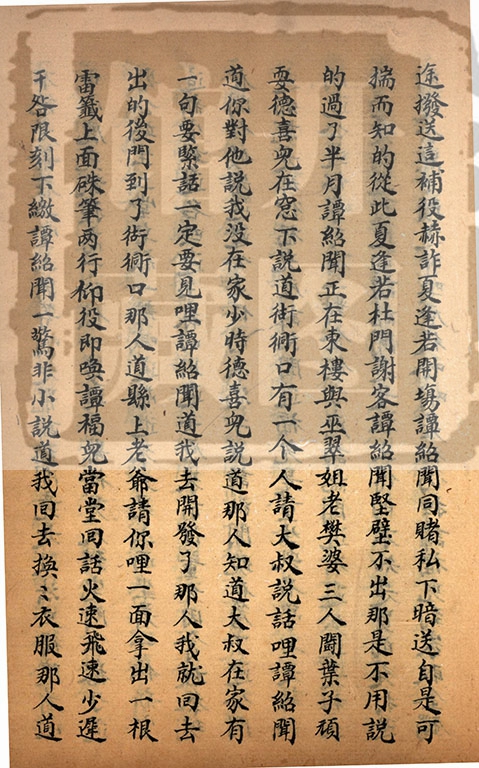 途撥送這補役赫詐夏逢若開塲譚紹聞同賭私下暗送自是可
揣而知的從此夏逢若杜門謝客譚紹聞堅壁不出那是不用說
的過了半月譚紹聞正在東樓與巫翠姐老樊婆三人鬪葉子頑
耍德喜兒在窓下說道衚衕口有一个人請大叔說話哩譚紹聞
道你對他說我没在家少時德喜兒說道那人知道大叔在家有
一句要緊話一定要見哩譚紹聞道我去開發了那人我就回去
出的後門到了衚衕口那人道縣上老爺請你哩一面拿出一根
雷籤上面硃筆两行仰役即喚譚福兒當堂回話火速飛速少遲
干咎限刻下繳譚紹聞一驚非小說道我回去換〻衣服那人道